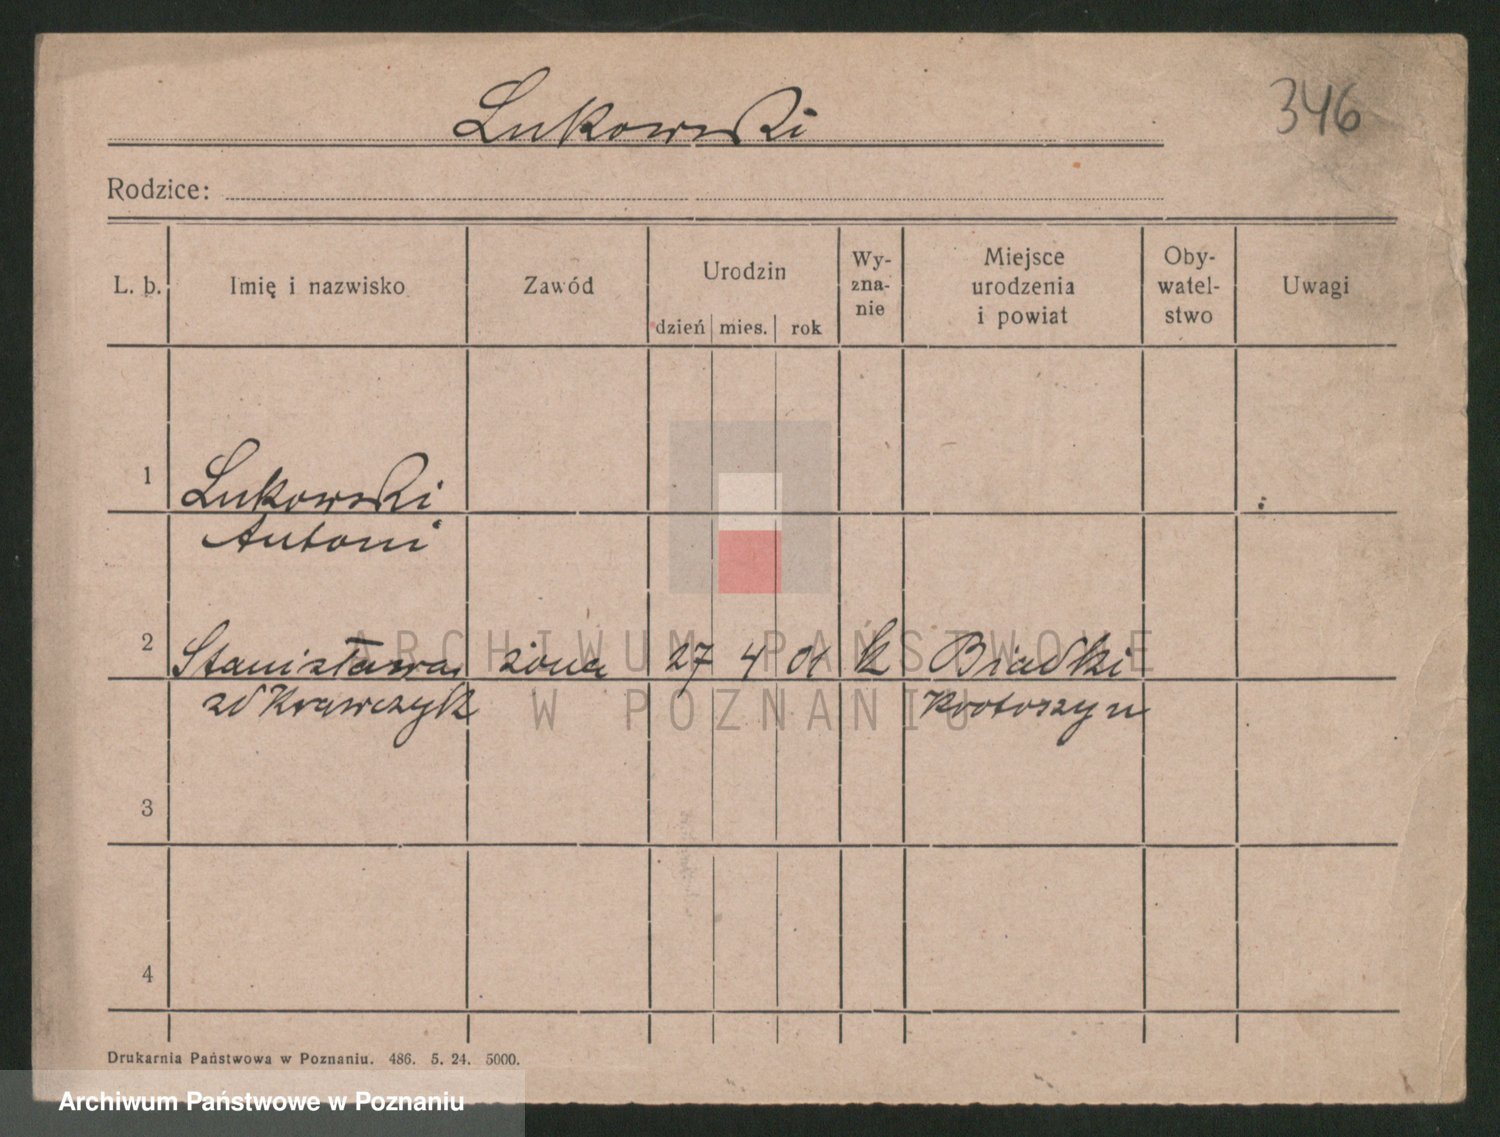 Lukowski
346
Rodzice:
L. b. Imię i nazwisko Zawód Urodzin dzień mies. rok Wy-zna-nie Miejsce urodzenia i powiat Oby-watel-stwo Uwagi
1 Lukowski
Antoni
2 Stanisława żona 27 4 01 k Biadki
zd Krawczyk Krotoszyn
3
4
ARCHIWUM PAŃSTWOWE
W POZNANIU
Drukarnia Państwowa w Poznaniu. 486. 5. 24. 5000.
Archiwum Państwowe w Poznaniu